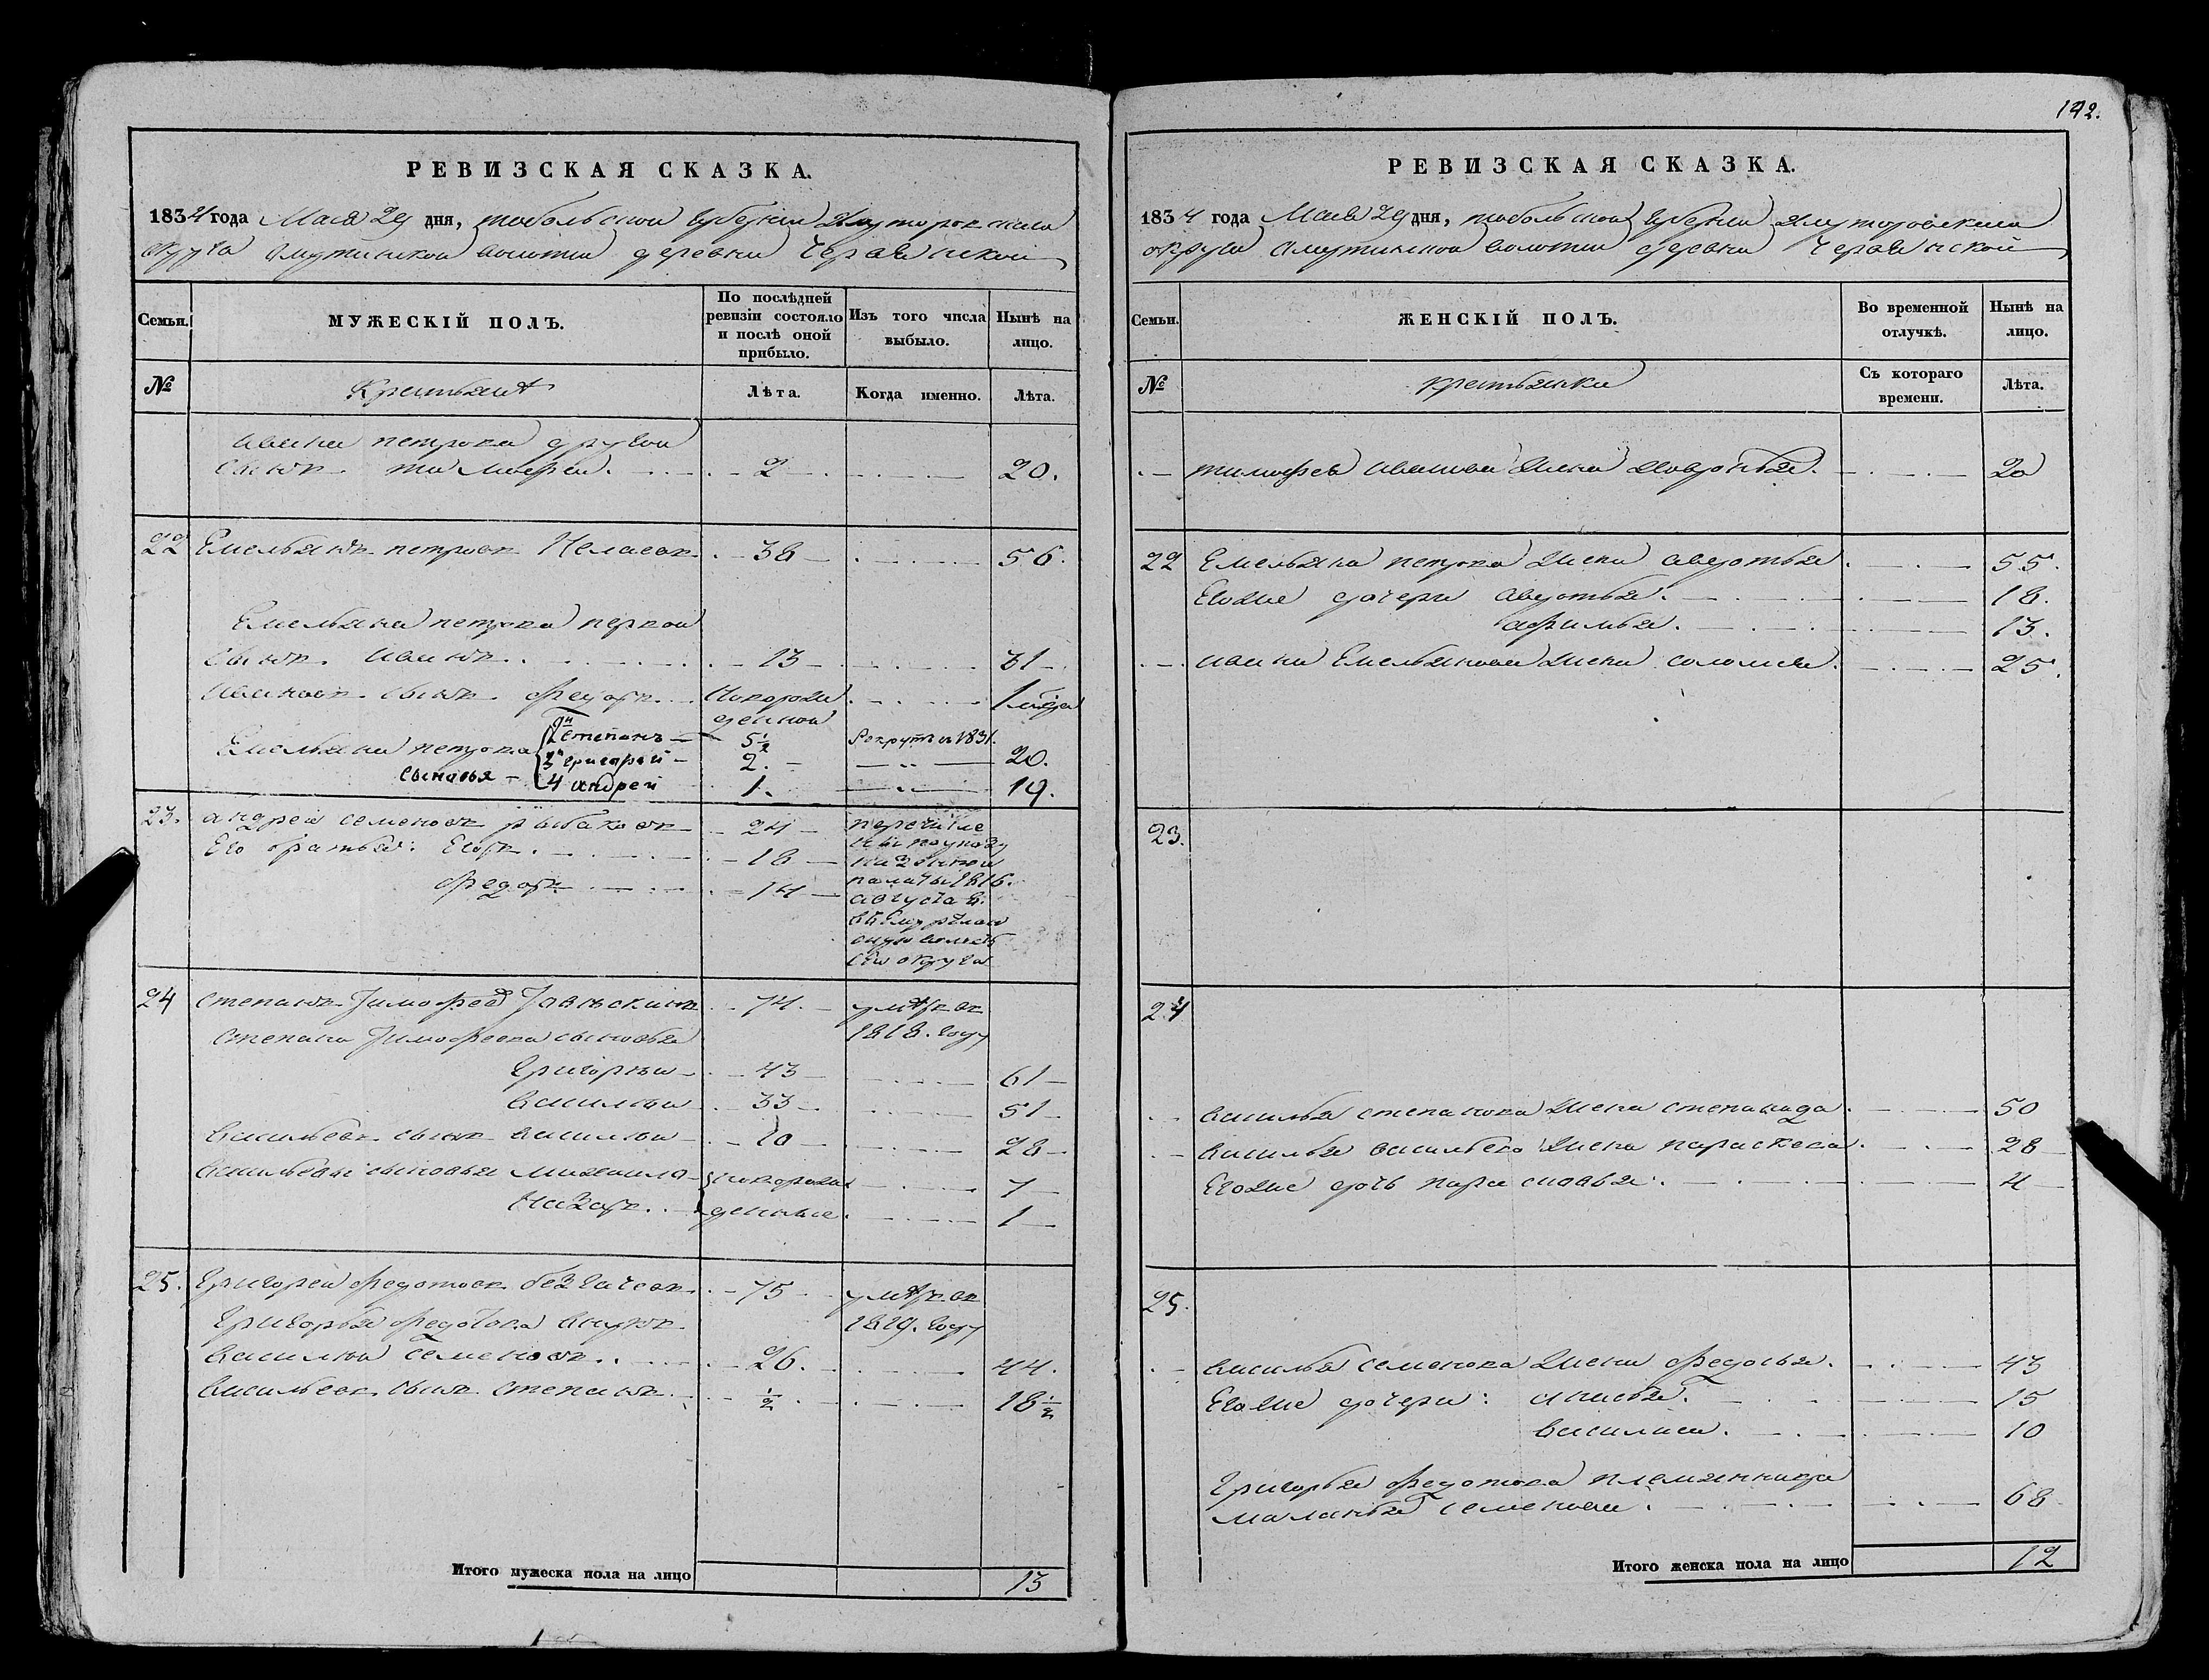 РЕВИЗСКАЯ СКАЗКА.
1834 года Маія 29 дня, тобольской губерніи Ялуторовскаго
округа Омутинской волости деревни
Семьи. МУЖЕСКІЙ ПОЛЪ. По послѣдней ревизіи состояло и послѣ оной прибыло. Изъ того числа выбыло. Нынѣ на лицо.
№ Крестьянѣ Лѣта. Когда именно. Лѣта.
ивана петрова другой
сынъ тимофей. 2 20.
22 Емельянъ петровъ 38 56.
Емельяна петрова первой
сынъ иванъ. 13 31
ивановъ сынъ федоръ. новорож 1 года
денной
2й степанъ 5½ Рекрутъ въ 1831.
Емельяна петрова 3й григорей 2. 20.
сыновья 4 андрей 1. 19.
23. андрей семеновъ рыбаковъ 24 перечисле
Его братья: Егоръ. 18 ны по указу
казенной
федоръ 14 палаты 1816.
августа 8.
волость
сего округа
24 степанъ Тимофеев 74. умѣръ въ
степана Тимофеева сыновья 1818. году
Григорій 43 61
василій 33 51
васильевъ сынъ василій 10 28
васильевы сыновья михайло новорож 7
Назаръ. денные 1
25. Григорей федотовъ 75 умѣръ въ
Григорья федотова внукъ 1819. году
василій семеновъ. 26. 44.
васильевъ сынъ степанъ. ½. 18½
Итого мужеска пола на лицо 13
142.
РЕВИЗСКАЯ СКАЗКА.
1834 года Маія 29 дня, тобольской губерніи Ялуторовскаго
округа Омутинской волости деревни
Семьи. ЖЕНСКІЙ ПОЛЪ. Во временной отлучкѣ. Нынѣ на лицо.
№ крестьянки Съ котораго времени. Лѣта.
тимофея иванова жена 20
22 Емельяна петрова жена авдотья 55.
Егоже дочери авдотья. 18.
афимья. 13.
ивана Емельянова жена соломея. 25.
23.
24
василья степанова жена степанида. 50
василья васильева жена параскева. 28
Егоже дочь парасковья. 4
25.
василья семенова жена федосья. 43
Егоже дочери: анисья. 15
василиса. 10
Григорья федотова племянница
маланья семенова. 68
Итого женска пола на лицо 12